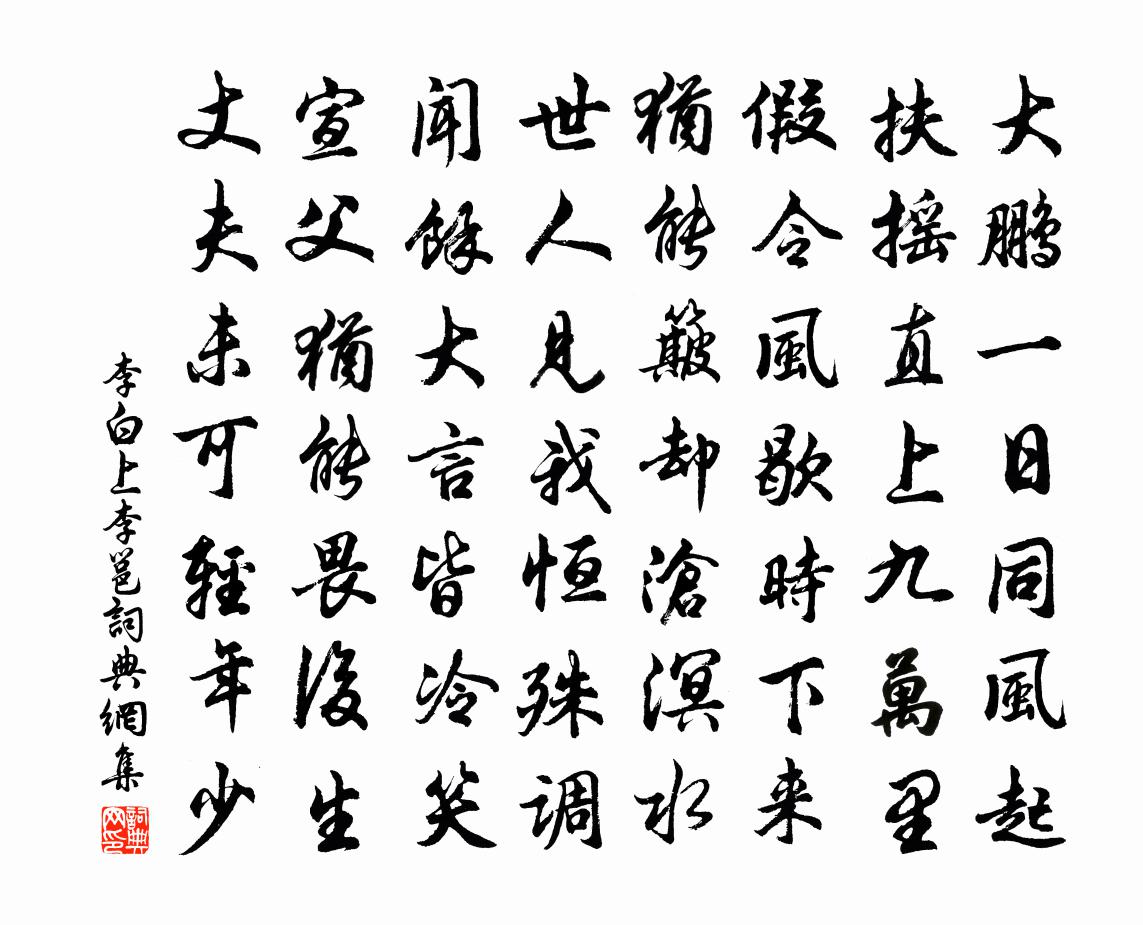 大鹏一日同風起
扶摇直上九萬里
假令風歇時下来
猶能簸却滄溟水
世人見我恒殊调
闻餘大言皆冷笑
宣父猶能畏後生
丈夫未可輕年少
李白上李邕詞典網集
詞典网印